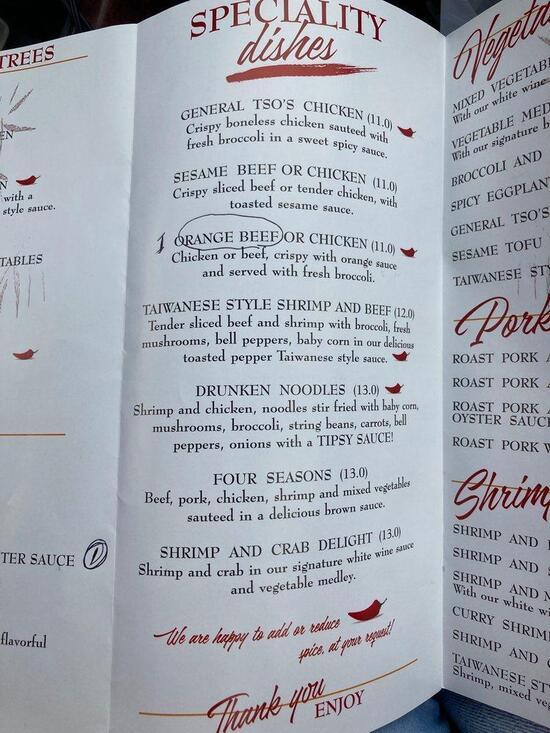 TREES
N
with a
style sauce.
TABLES
TER SAUCE D
flavorful
SPECIALITY
dishes
GENERAL TSO'S CHICKEN (11.0)
Crispy boneless chicken sauteed with
fresh broccoli in a sweet spicy sauce.
SESAME BEEF OR CHICKEN (11.0)
Crispy sliced beef or tender chicken, with
toasted sesame sauce.
1 ORANGE BEEF OR CHICKEN (11.0)
Chicken or beef, crispy with orange sauce
and served with fresh broccoli.
TAIWANESE STYLE SHRIMP AND BEEF (12.0)
Tender sliced beef and shrimp with broccoli, fresh
mushrooms, bell peppers, baby corn in our delicious
toasted pepper Taiwanese style sauce.
DRUNKEN NOODLES (13.0)
Shrimp and chicken, noodles stir fried with baby corn,
mushrooms, broccoli, string beans, carrots, bell
peppers, onions with a TIPSY SAUCE!
FOUR SEASONS (13.0)
Beef, pork, chicken, shrimp and mixed vegetables
sauteed in a delicious brown sauce.
SHRIMP AND CRAB DELIGHT (13.0)
Shrimp and crab in our signature white wine sauce
and vegetable medley.
We are happy to add or reduce
spice, at your request!
Thank you
ENJOY
Vegeta
MIXED VEGETABL
With our white wine
VEGETABLE MED
With our signature b
BROCCOLI AND
SPICY EGGPLANT
GENERAL TSO'S
SESAME TOFU
TAIWANESE STY
Pork
ROAST PORK A
ROAST PORK A
ROAST PORK A
OYSTER SAUCE
ROAST PORK W
Shrimp
SHRIMP AND
SHRIMP AND
SHRIMP AND M
With our white w
CURRY SHRIMP
SHRIMP AND
TAIWANESE STY
Shrimp, mixed veg